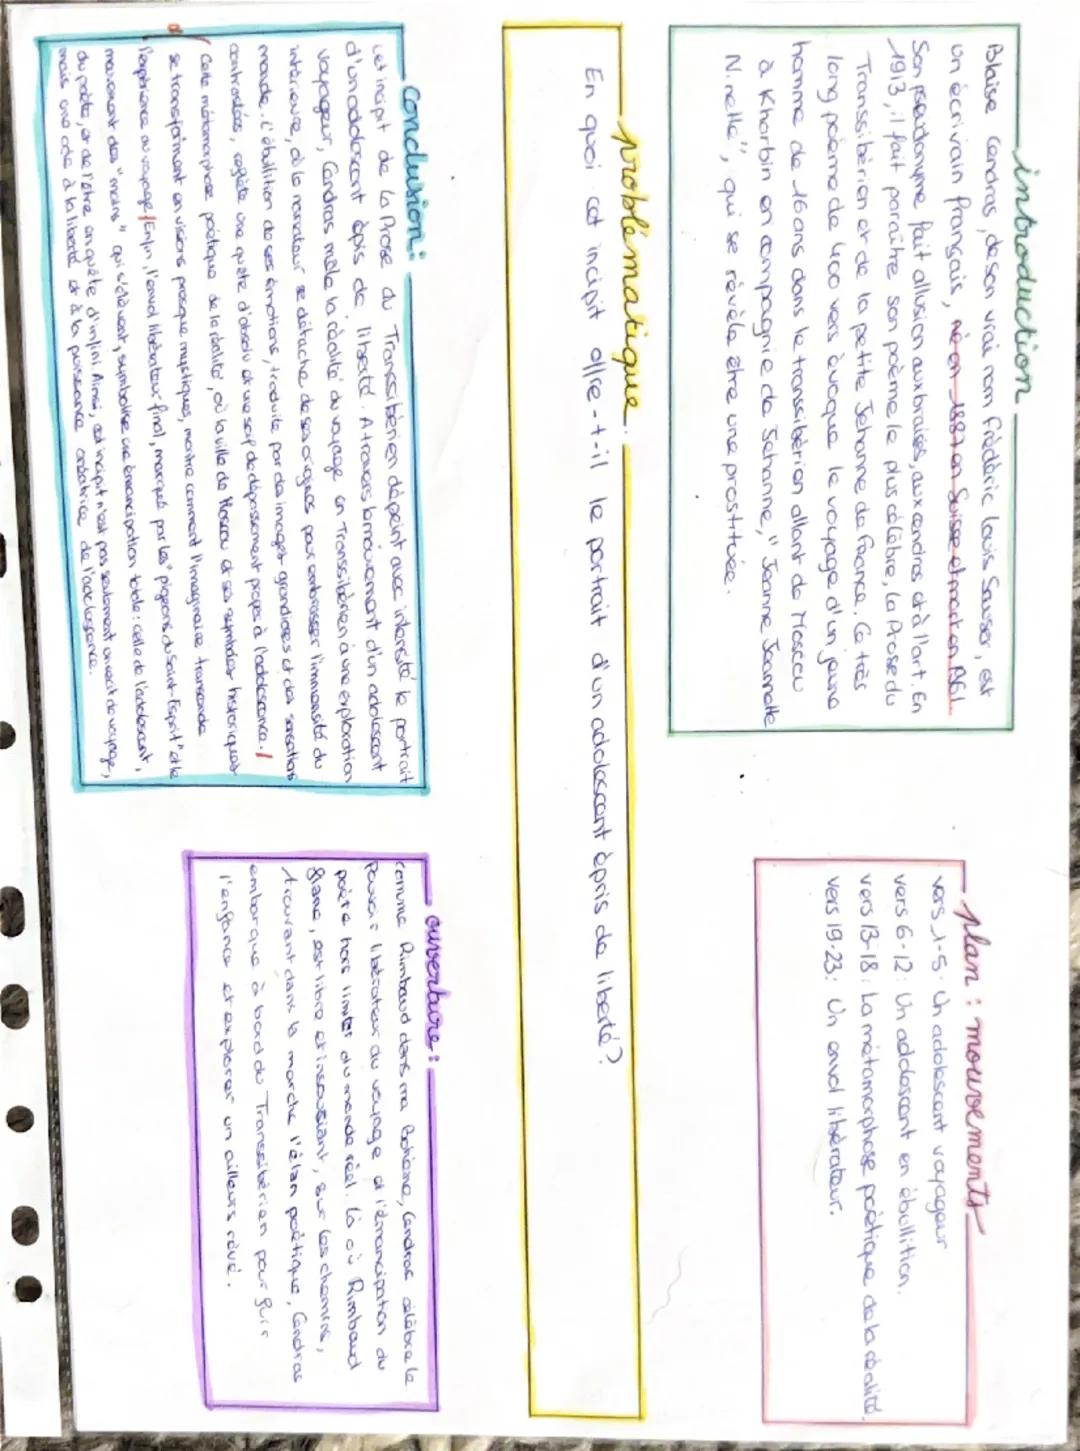 introduction
Blaise Cendras, de son vrai nom Frédéric Louis Sauser, est
un écrivain français, né en 1887 en Suisse et mort en 1961.
Son pseudonyme fait allusion aux braises, aux cendres et à l'art. En
1913, il fait paraître son poème le plus célèbre, la Prose du
Transsibérien et de la petite Jehanne de France. Ce très
long poème de 400 vers évoque le voyage d'un jeune
homme de 16 ans dans le transsibérien allant de Moscou
à Kharbin en compagnie de Jehanne, "Jeanne Jeannette
Ninette", qui se révèle être une prostituée.
plan : mouvements
vers 1-5 : Un adolescent voyageur
vers 6-12 : Un adolescent en ébullition.
vers 13-18 : La métamorphose poétique de la réalité.
vers 19-23 : Un envol libérateur.
problématique :
En quoi cet incipit offre-t-il le portrait d'un adolescent épris de liberté ?
conclusion :
Cet incipit de La Prose du Transsibérien dépeint avec intensité le portrait
d'un adolescent épris de liberté. A travers le mouvement d'un adolescent
voyageur, Cendras mêle la réalité du voyage en Transsibérien à une exploration
intérieure, où le narrateur se détache de ses origines pour embrasser l'immensité du
monde. L'ébullition de ses émotions, traduite par des images grandioses et des sensations
contrastées, reflète une quête d'absolu et une soif de dépassement propres à l'adolescence. /
Cette métamorphose poétique de la réalité, où la ville de Moscou et ses symboles historiques
se transforment en visions presque mystiques, montre comment l'imaginaire transcende
l'expérience du voyage / Enfin, l'envol libérateur final, marqué par les "pigeons du Saint-Esprit" et le
mouvement des "mains" qui s'élèvent, symbolise une émancipation totale : celle de l'adolescent,
du poète, et de l'être en quête d'infini. Ainsi, cet incipit n'est pas seulement un récit de voyage,
mais une ode à la liberté et à la puissance créatrice de l'adolescence.
ouverture :
Comme Rimbaud dans ma Bohème, Cendras célèbre le
pouvoir libérateur du voyage et l'émancipation du
poète hors limites du monde réel. Là où Rimbaud
flâne, est libre et insouciant, sur les chemins,
trouvant dans la marche l'élan poétique, Cendras
embarque à bord du Transsibérien pour fuir
l'enfance et explorer un ailleurs rêvé.